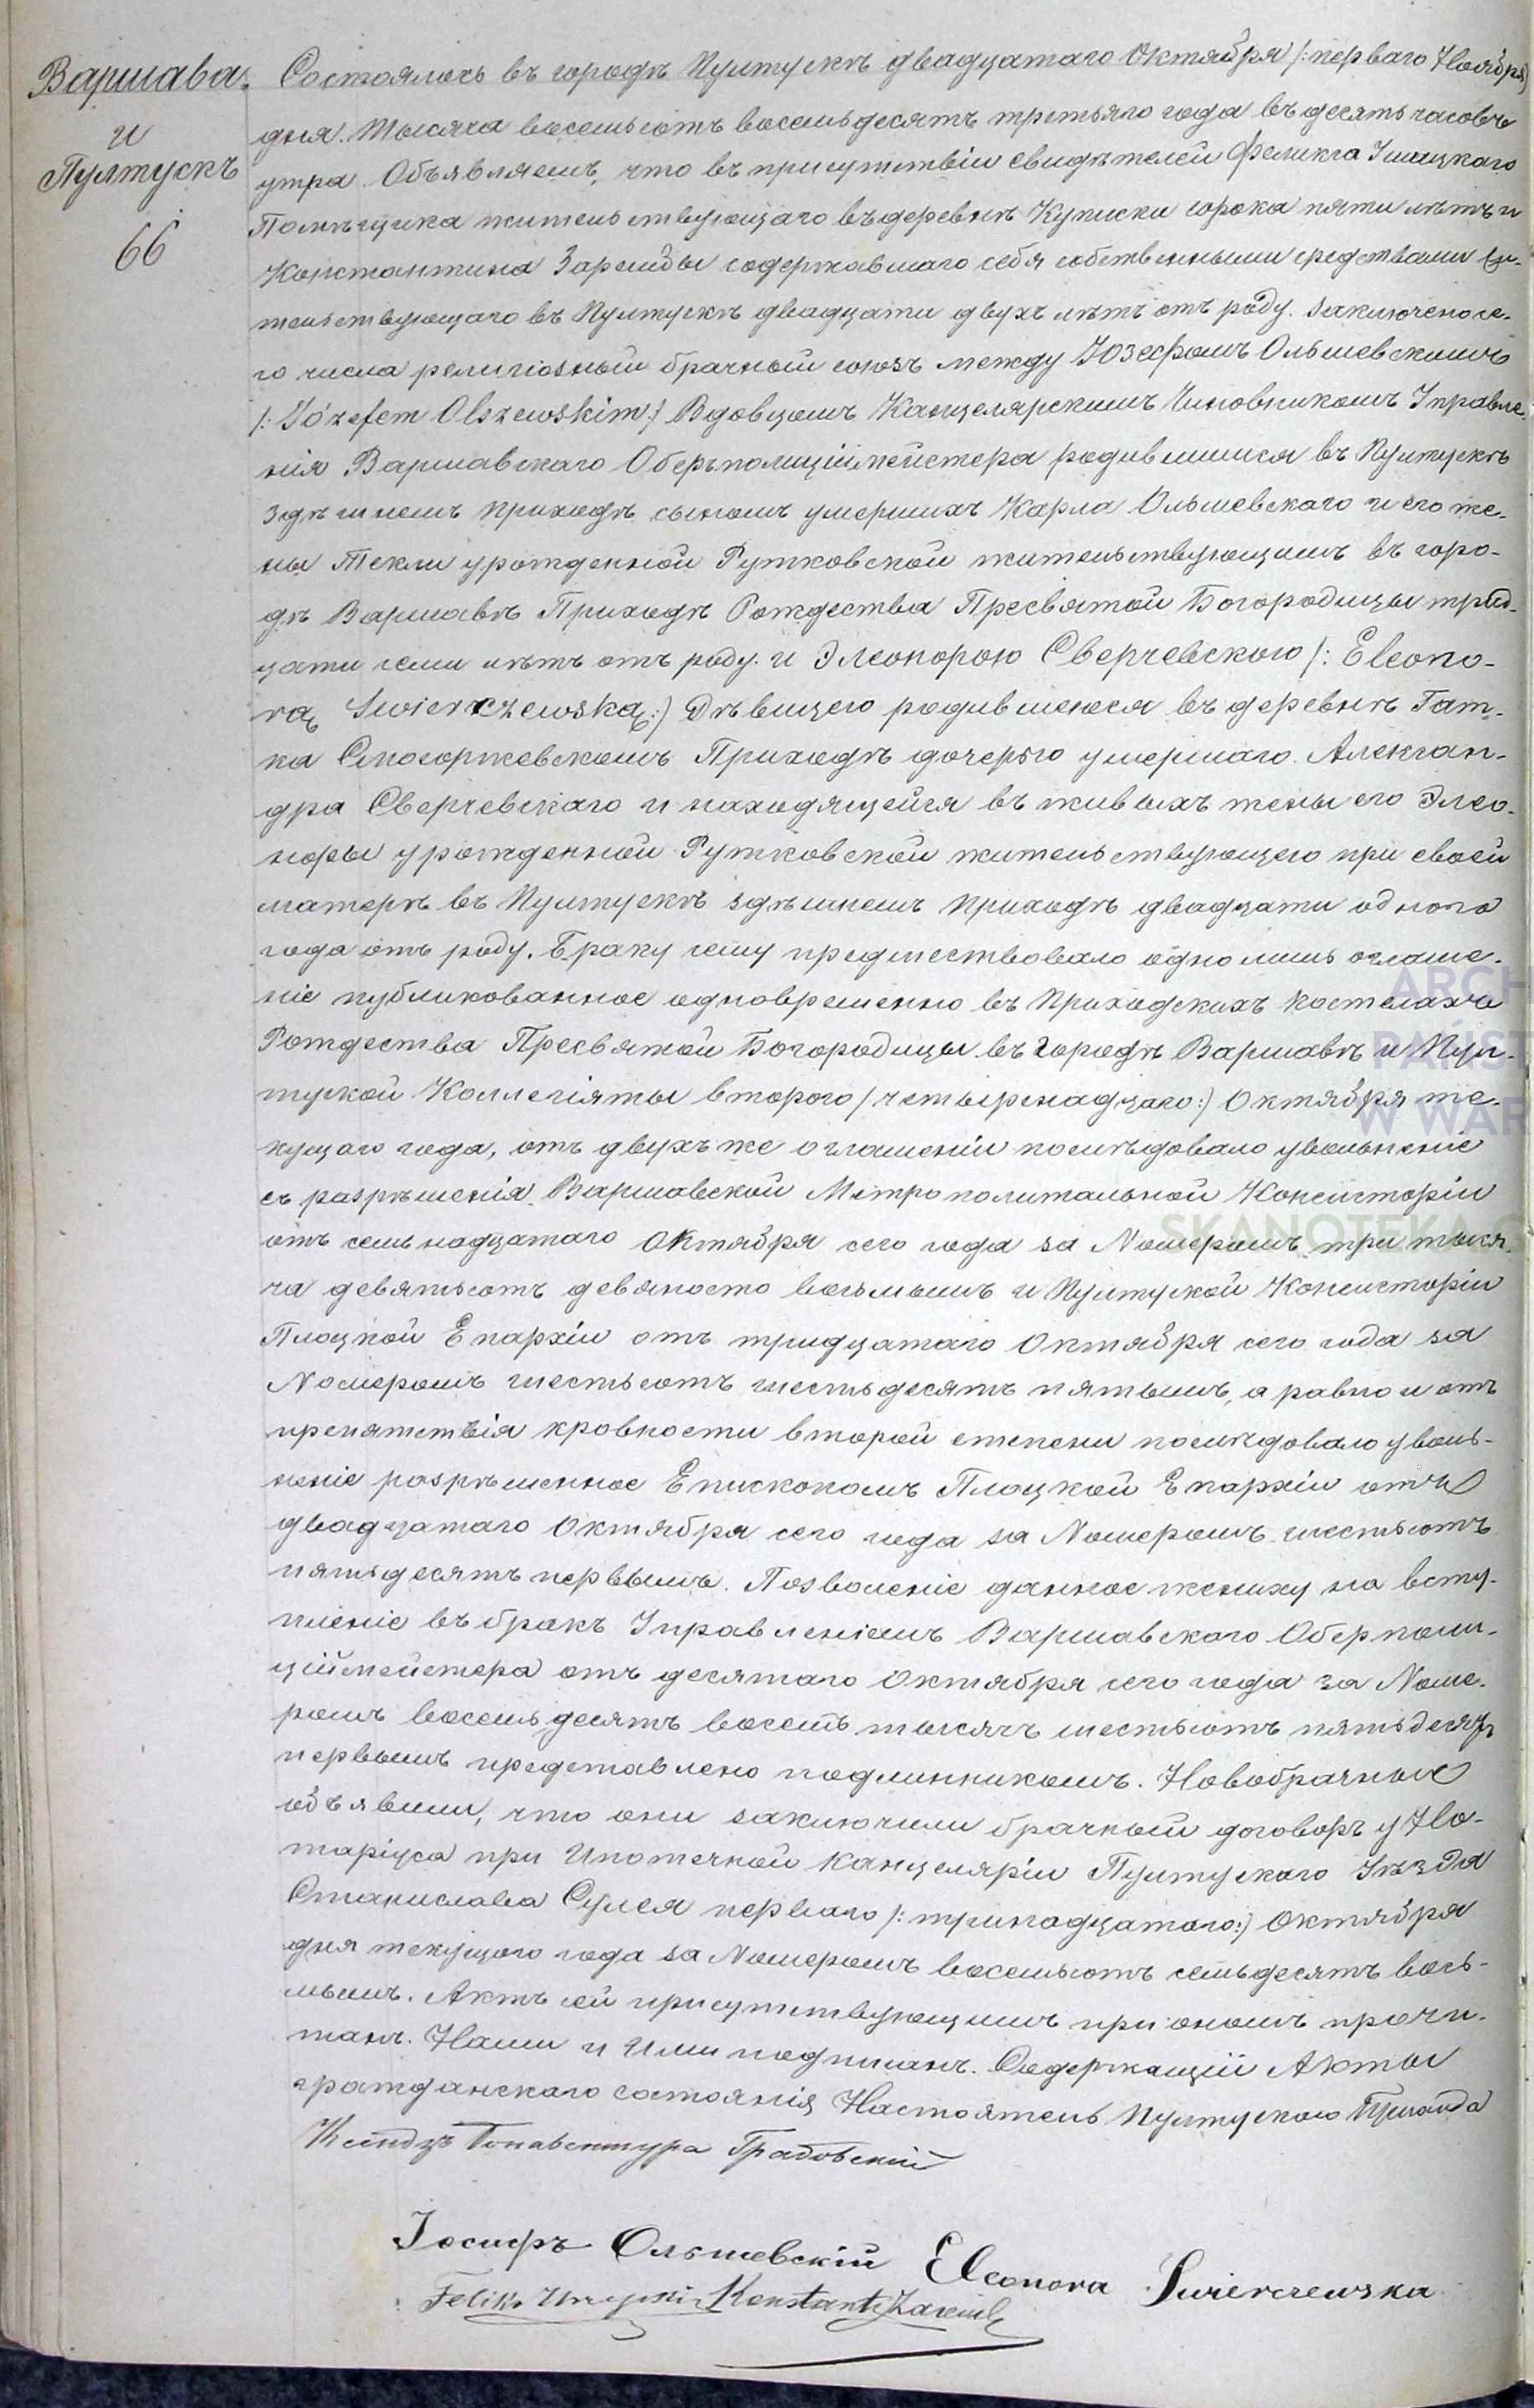 Варшава
и
Пултускъ
66
Состоялось въ городѣ Пултускѣ двадцатаго Октября /:перваго Ноября:/
дня. Тысяча восемьсотъ восемьдесятъ третьяго года въ десять часовъ
утра. Объявляемъ, что въ присутствіи свидѣтелей Феликса
Помѣщика жительствующаго въ деревнѣ сорока пяти лѣтъ и
Константина Зарембы содержавшаго себя собственными средствами жи-
тельствующаго въ Пултускѣ двадцати двухъ лѣтъ отъ роду. заключено се-
го числа религіозный брачный союзъ между Юзефомъ Ольшевскимъ
/: Józefem Olszewskim:/ Вдовцомъ Канцелярскимъ Чиновникомъ Управле-
нія Варшавскаго Оберъполиціймейстера родившимся въ Пултускѣ
здѣшнемъ Приходѣ сыномъ умершихъ Карла Ольшевскаго и его же-
ны Текли урожденной Рутковской жительствующимъ въ горо-
дѣ Варшавѣ Приходѣ Рождества Пресвятой Богородицы трид-
цати семи лѣтъ отъ роду. и Элеонорою Сверчевскою /: Eleono-
rą Swierczewską:/ Дѣвицею родившеюся въ деревнѣ Гат-
ка Смогоржевскомъ Приходѣ дочерью умершаго Алексан-
дра Сверчевскаго и находящейся въ живыхъ жены его Элео-
норы урожденной Рутковской жительствующею при своей
матерѣ въ Пултускѣ здѣшнемъ Приходѣ двадцати одного
года отъ роду. Браку сему предшествовало одно лишь оглаше-
ніе публикованное одновременно въ Приходскихъ Костелахъ
Рождества Пресвятой Богородицы въ городѣ Варшавѣ и Пул-
туской Коллегіяты второго /четырнадцаго:/ Октября те-
кущаго года, отъ двухъ же оглашеній послѣдовало увольненіе
съ разрѣшенія Варшавской Митрополитальной Консисторіи
отъ семьнадцатаго Октября сего года за Номеромъ три тыся-
ча девятьсотъ девяносто восьмымъ и Пултуской Консисторіи
Плоцкой Епархіи отъ тридцатаго Октября сего года за
Номеромъ шестьсотъ шестьдесятъ пятымъ, а равно и отъ
препятствія кровности второй степени послѣдовало уволь-
неніе разрѣшенное Епископомъ Плоцкой Епархіи отъ
двадцатаго Октября сего года за Номеромъ шестьсотъ
пятьдесятъ первымъ. Позволеніе данное жениху на всту-
пленіе въ бракъ Управленіемъ Варшавскаго Оберполи-
ціймейстера отъ десятаго Октября сего года за Номе-
ромъ восемьдесятъ восемь тысячъ шестьсотъ пятьдесятъ
первымъ представлено подлинникомъ. Новобрачные
объявили, что они заключили брачный договоръ у Но-
таріуса при Ипотечной Канцеляріи Пултускаго Уѣзда
Станислава Сулея перваго /:тринадцатаго:/ Октября
дня текущаго года за Номеромъ восемьсотъ семьдесятъ вось-
мымъ. Актъ сей присутствующимъ при ономъ прочи-
танъ. Нами и Ими подписанъ. Содержащій Акты
гражданскаго состоянія Настоятель Пултускаго Прихода
Ксендзъ Бонавентура Градовскій
Іосифъ Ольшевскій Eleonora Swierczewska
Feliks Konstanty Zaremba
ARCH
PAŃST
W WAR
SKANOTEKA.G